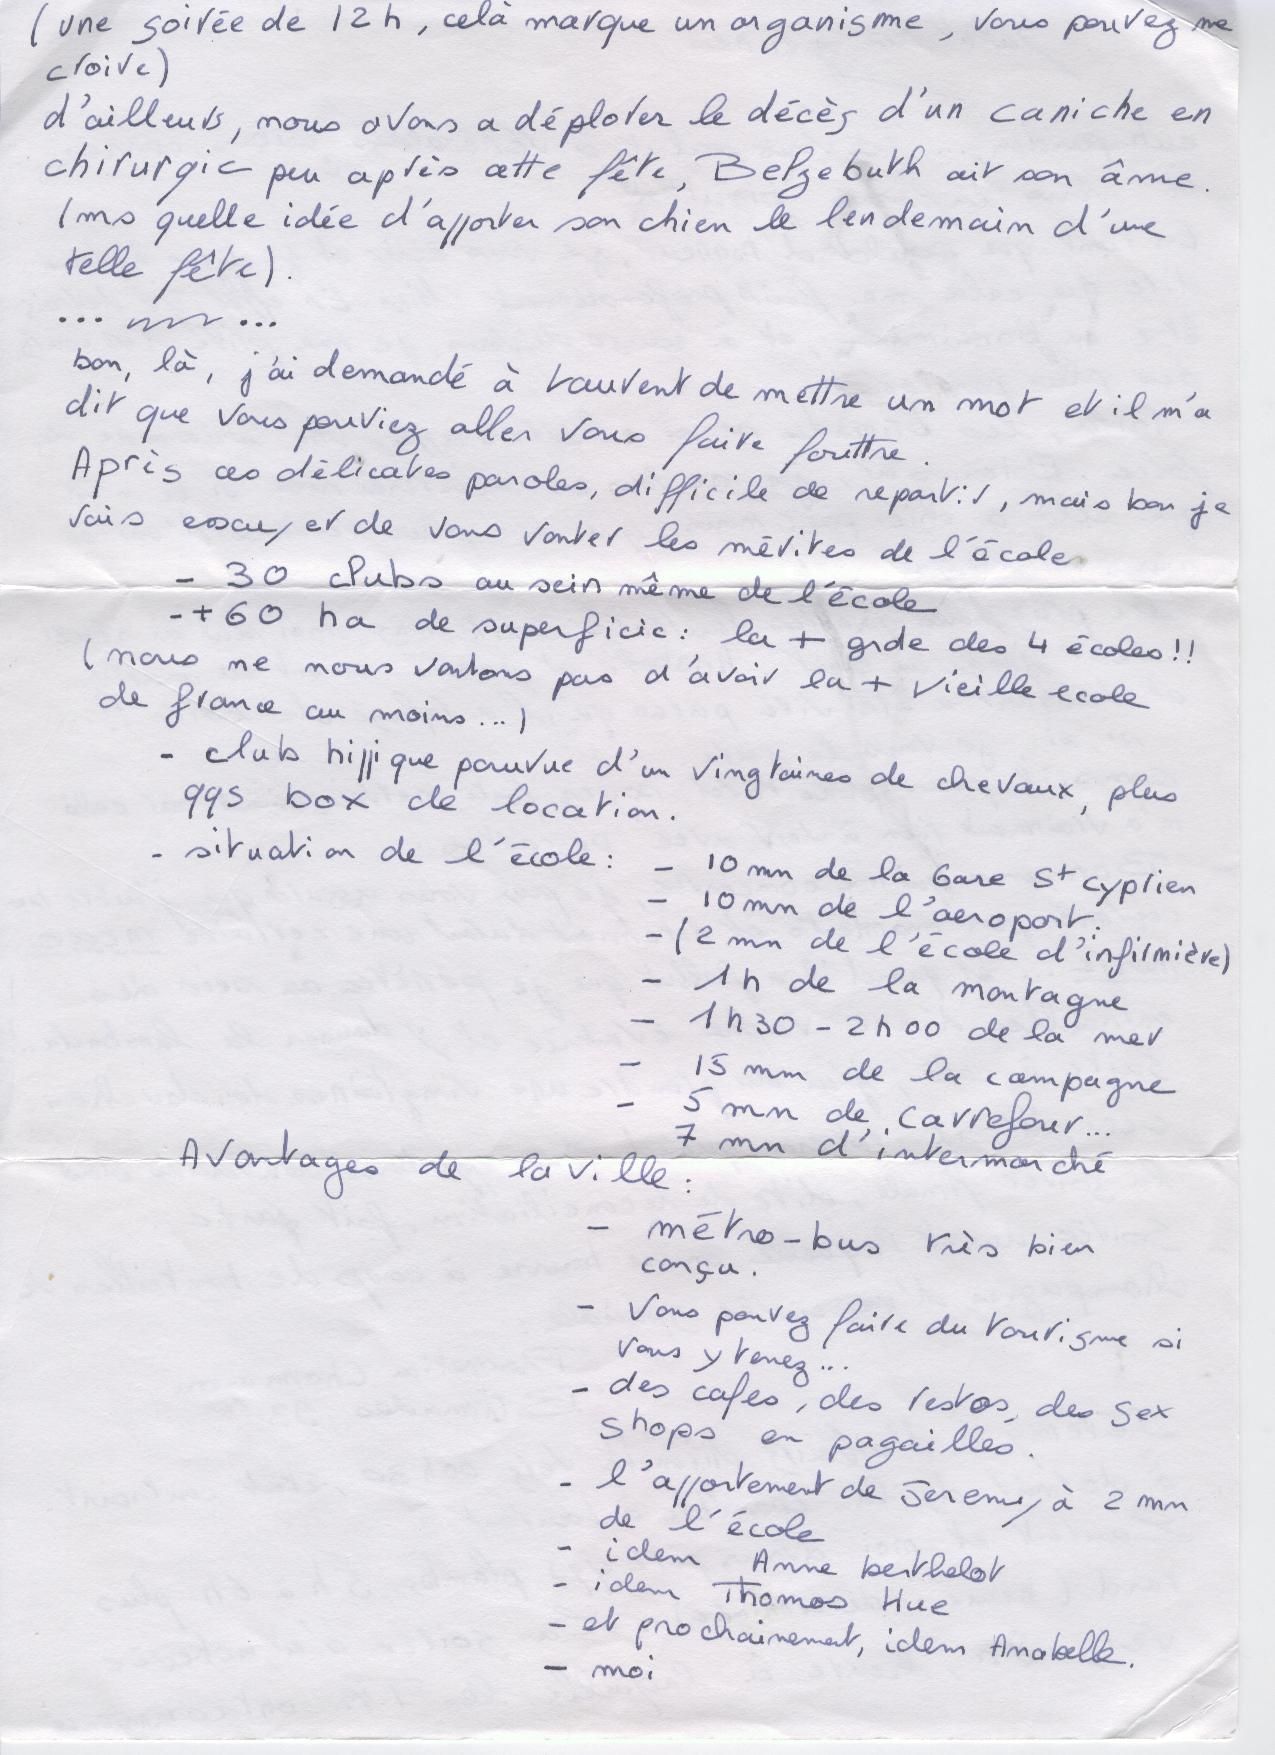 (une soirée de 12h, celà marque un organisme, vous pouvez me
croire)
d'ailleurs, nous avons a déplorer le décès d'un caniche en
chirurgie peu après cette fête, Belzebuth ait son âme.
(ms quelle idée d'apporter son chien le lendemain d'une
telle fête).
... ...
bon, là, j'ai demandé à Laurent de mettre un mot et il m'a
dit que vous pouviez aller vous faire fouttre.
Après ces délicates paroles, difficile de repartir, mais bon je
vais essayer de vous vanter les mérites de l'école
- 30 clubs au sein même de l'école
- + 60 ha de superficie : la + grde des 4 écoles !!
(nous ne nous vantons pas d'avoir la + vieille ecole
de france au moins...)
- club hippique pourvue d'un vingtaines de chevaux, plus
qqs box de location.
- situation de l'école :
- 10 mn de la Gare St cyprien
- 10 mn de l'aeroport.
- (2 mn de l'école d'infirmière)
- 1h de la montagne
- 1h30 - 2h00 de la mer
- 15 mn de la campagne
- 5 mn de Carrefour...
7 mn d'intermarché
Avantages de la ville :
- métro-bus très bien
conçu.
- Vous pouvez faire du tourisme si
vous y tenez...
- des cafes, des restos, des sex
shops en pagailles.
- l'appartement de Jeremy à 2 mn
de l'école
- idem Anne berthelot
- idem Thomas Hue
- et prochainement, idem Anabelle.
- moi